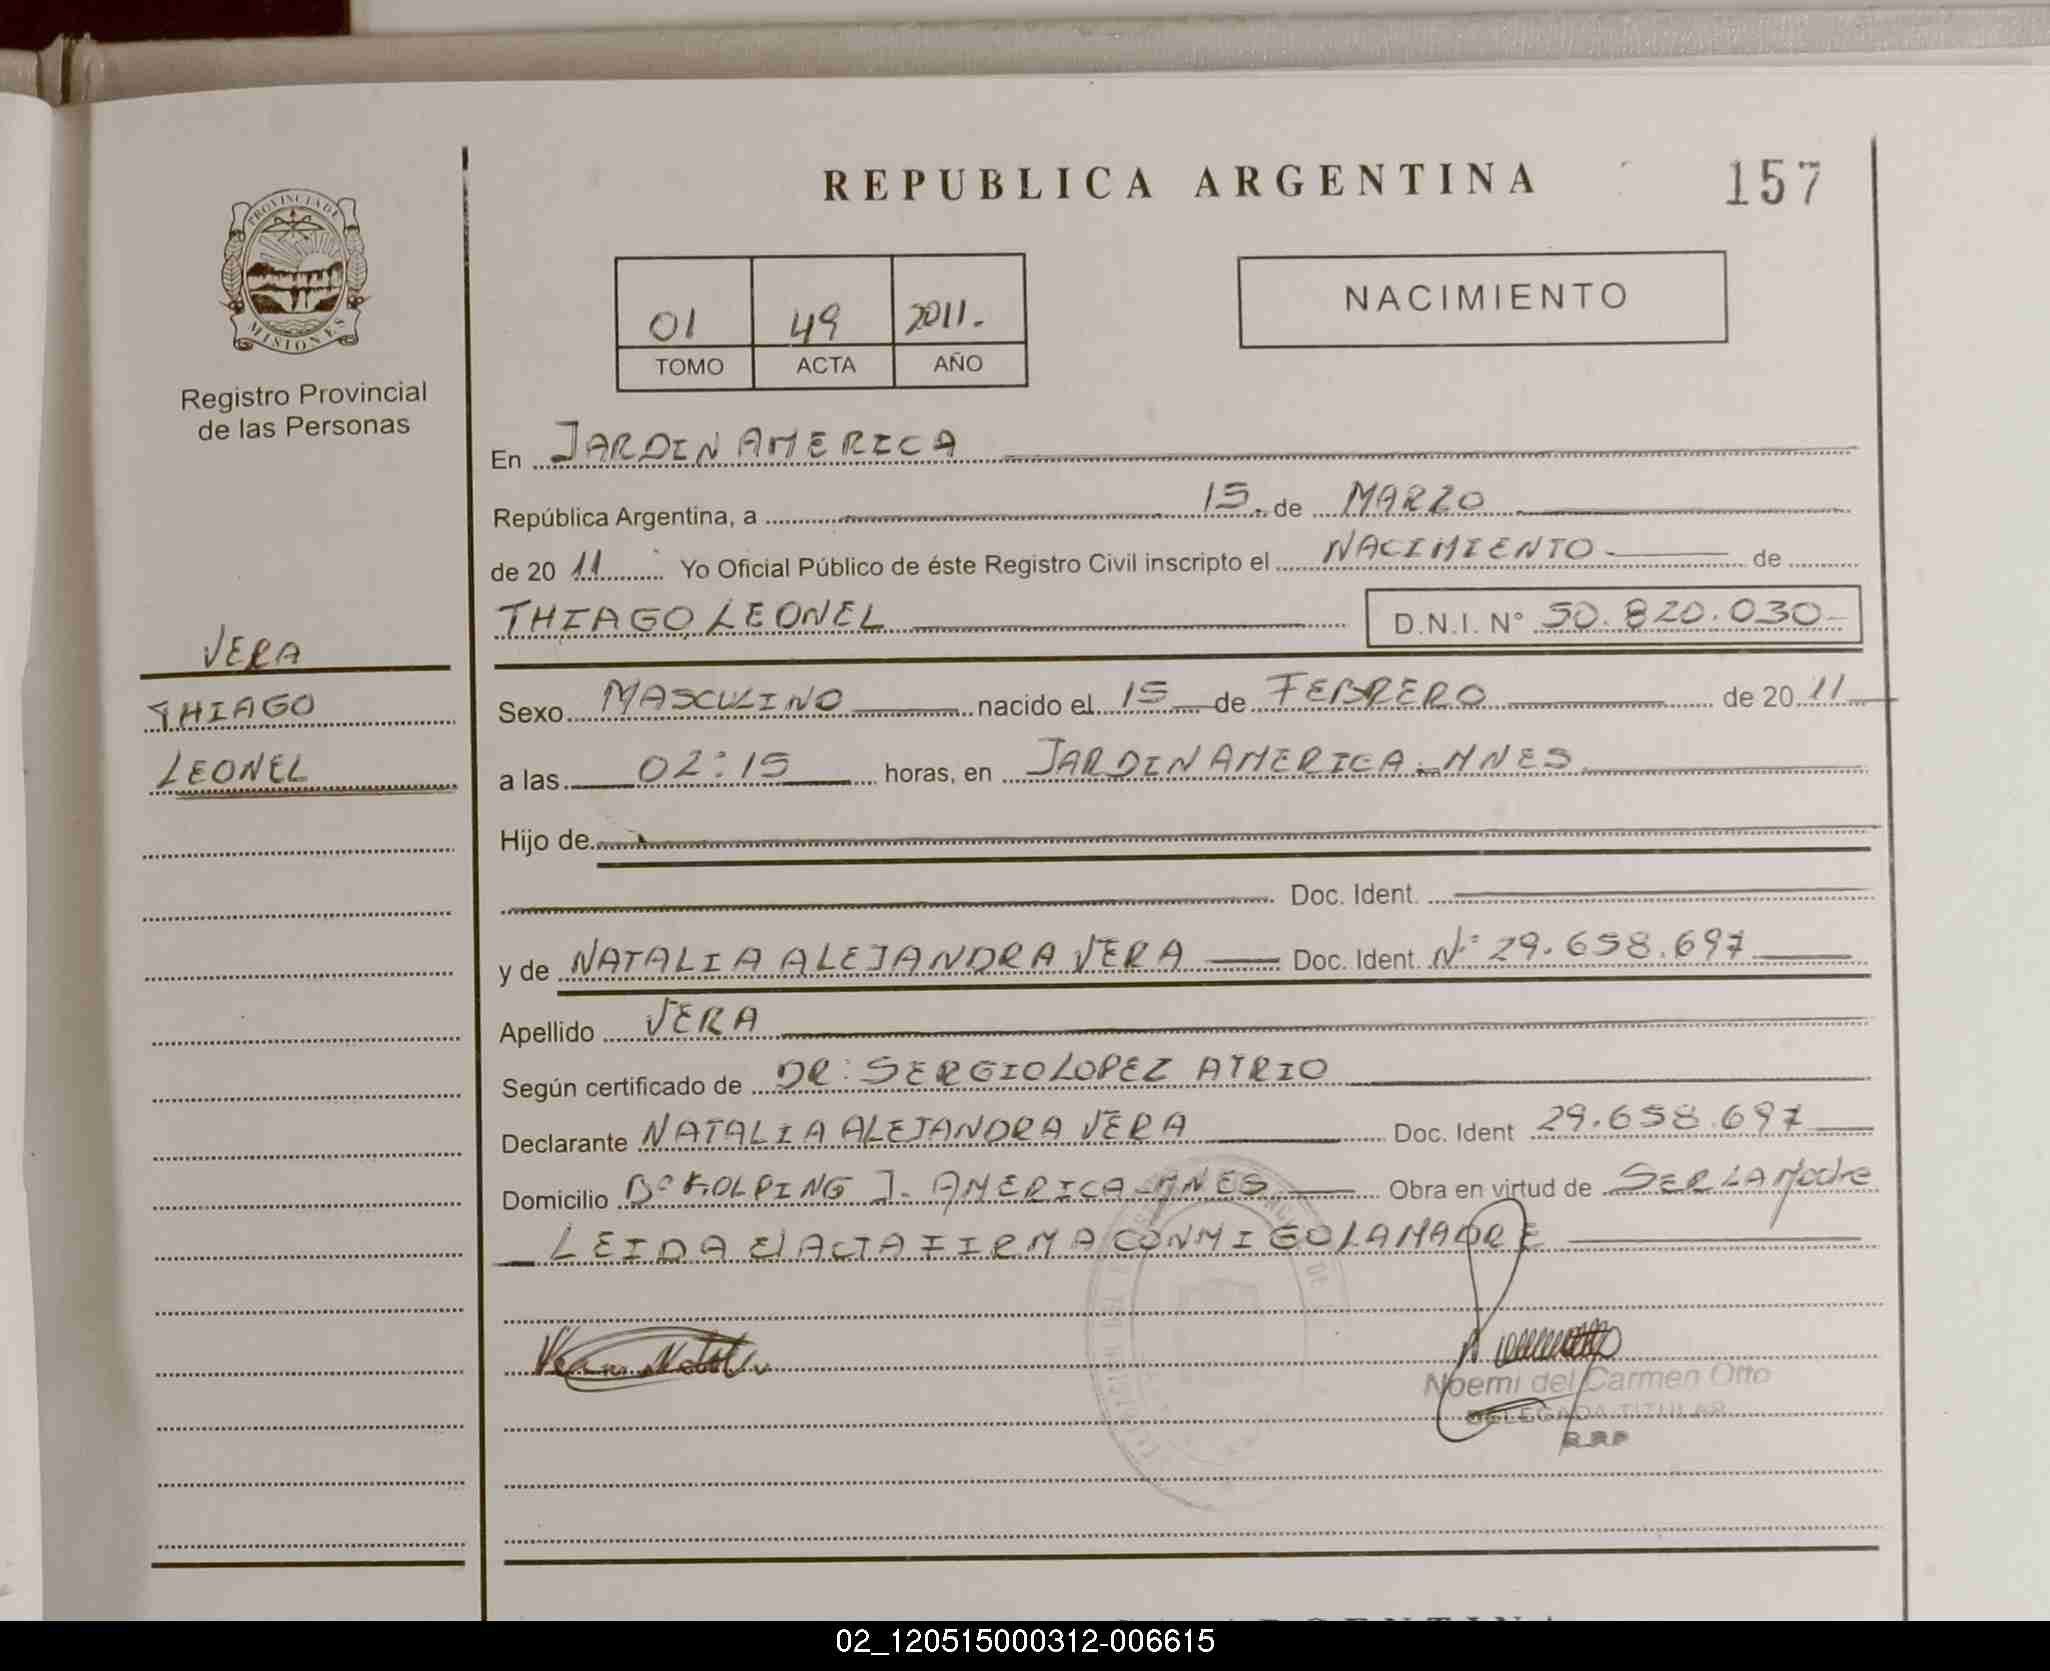 REPUBLICA ARGENTINA
157
PROVINCIA DE
MISIONES
Registro Provincial
de las Personas
01 49 2011.
TOMO ACTA AÑO
NACIMIENTO
VERA
THIAGO
LEONEL
En JARDIN AMERICA
República Argentina, a 15. de MARZO
de 20 11 Yo Oficial Público de éste Registro Civil inscripto el NACIMIENTO de
THIAGO LEONEL D.N.I. N° 50.820.030
Sexo MASCULINO nacido el 15 de FEBRERO de 20 11
a las 02:15 horas, en JARDIN AMERICA - MNES
Hijo de
Doc. Ident.
y de NATALIA ALEJANDRA VERA Doc. Ident. N° 29.658.697
Apellido VERA
Según certificado de DR: SERGIO LOPEZ ATRIO
Declarante NATALIA ALEJANDRA VERA Doc. Ident 29.658.697
Domicilio B° KOLPING J. AMERICA - MNES Obra en virtud de SER LA Madre
LEIDA El ACTA FIRMA CONMIGO LA MADRE
Noemi del Carmen Otto
DELEGADA TITULAR
R.P.P
02_120515000312-006615